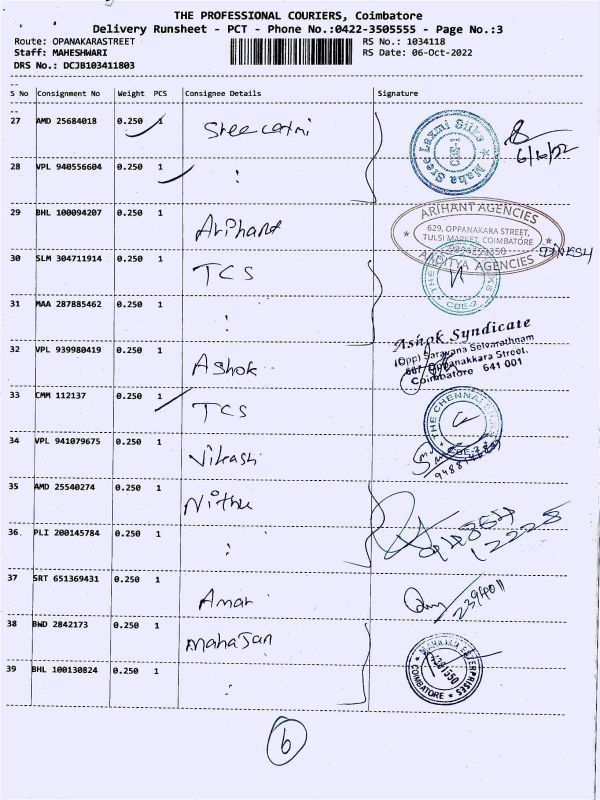 THE PROFESSIONAL COURIERS, Coimbatore
Delivery Runsheet - PCT - Phone No.:0422-3505555 - Page No.:3
Route: OPANAKARASTREET RS No.: 1034118
Staff: MAHESHWARI RS Date: 06-Oct-2022
DRS No.: DCJB103411803
S No Consignment No Weight PCS Consignee Details Signature
27 AMD 25684018 0.250 1
Maha Sree Laxmi Silks
CBE-1
28 VPL 940556604 0.250 1 :
29 BHL 100094207 0.250 1 Arihant
ARIHANT AGENCIES
629, OPPANAKARA STREET,
TULSI MARKET, COIMBATORE
AADITYA AGENCIES
DINESH
30 SLM 304711914 0.250 1 TCS
CBE-2
31 MAA 287885462 0.250 1 :
32 VPL 939980419 0.250 1 Ashok
Ashok Syndicate
(Opp) Saravana Selvarathnam
Oppanakkara Street,
Coimbatore 641 001
33 CMM 112137 0.250 1 TCS
THE CHENNAI
34 VPL 941079675 0.250 1 Vikash
35 AMD 25540274 0.250 1 Nithu
36. PLI 200145784 0.250 1 :
37 SRT 651369431 0.250 1 Amar
2394011
38 BWD 2842173 0.250 1 mahaJan
MAHAJAN ENTERPRISES
COIMBATORE
39 BHL 100130824 0.250 1 :
6